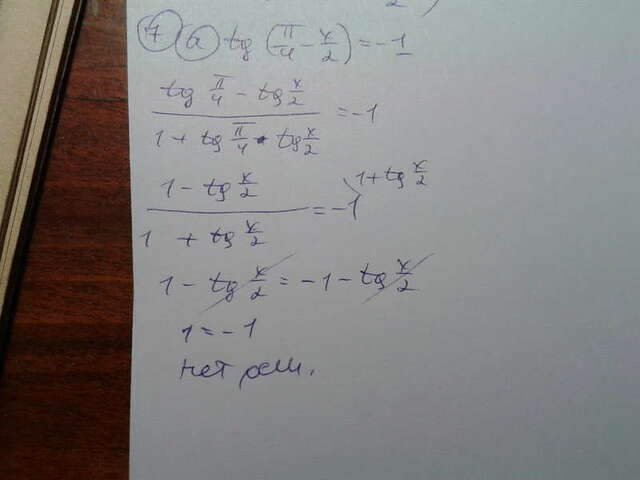 7 a tg (π/4 - x/2) = -1
(tg π/4 - tg x/2) / (1 + tg π/4 · tg x/2) = -1
(1 - tg x/2) / (1 + tg x/2) = -1 \ 1 + tg x/2
1 - tg x/2 = -1 - tg x/2
1 = -1
нет реш.